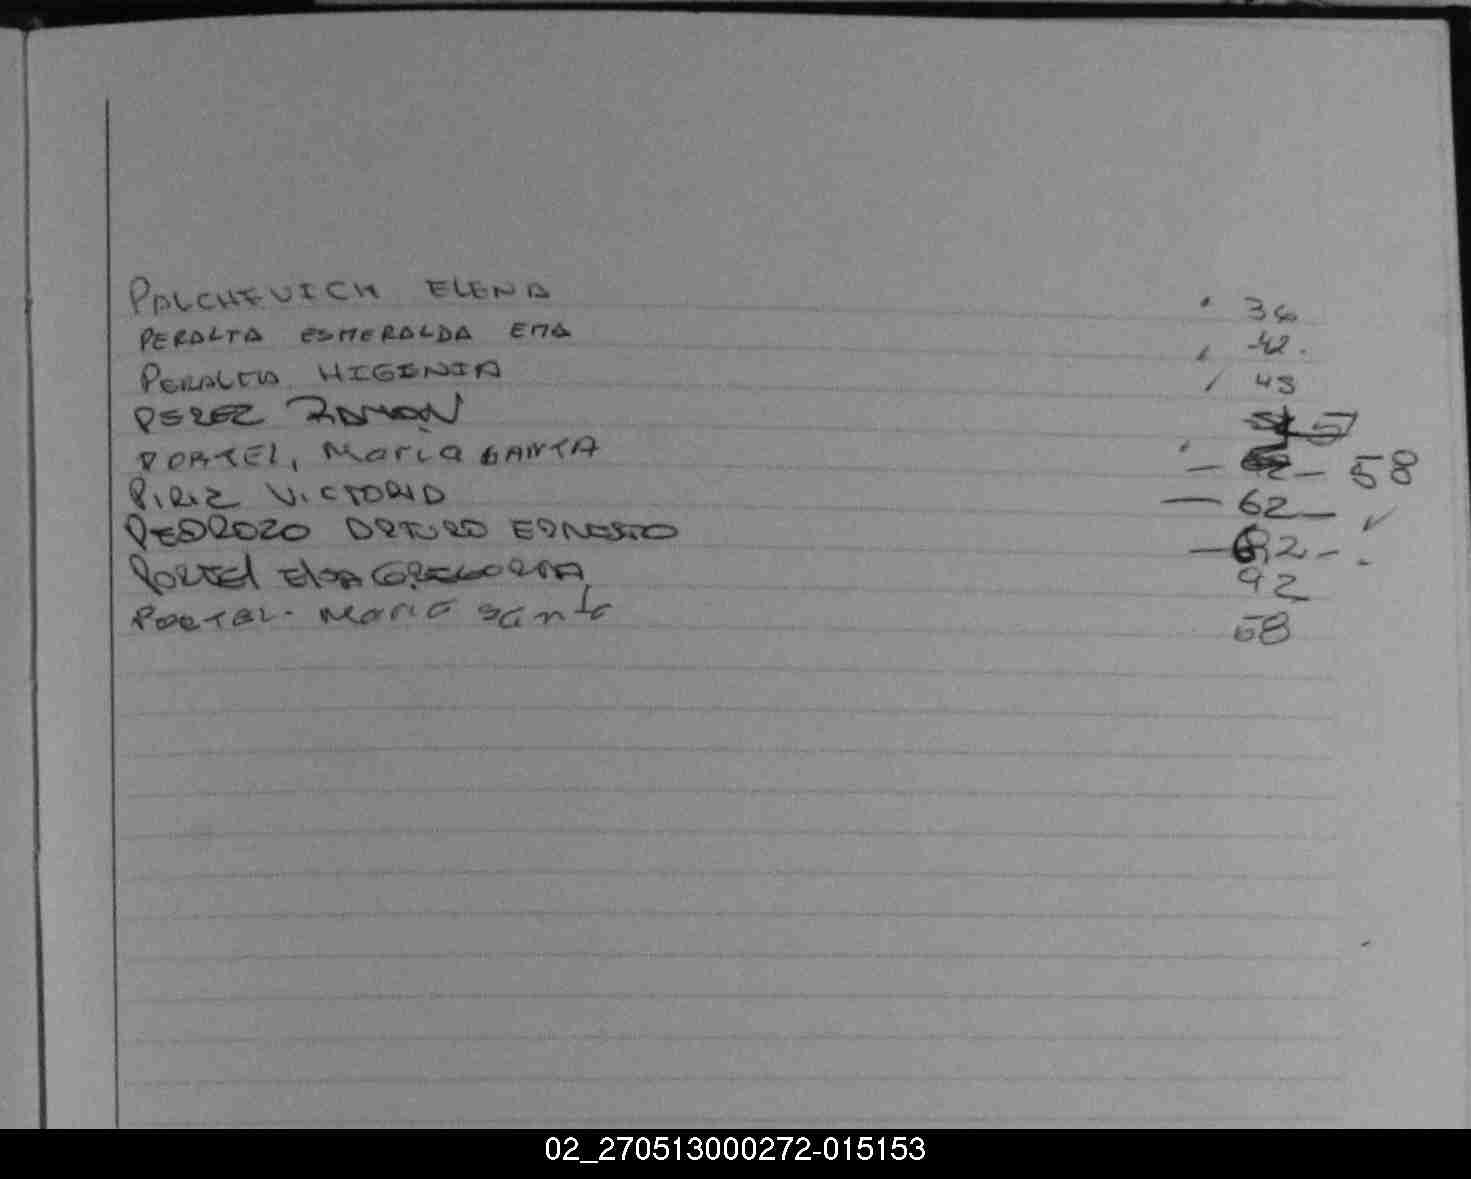 PALCHEVICH ELENA 36
PERALTA ESMERALDA EMA 42.
PERALTA HIGINIA 48
PEREZ RAMON 57
PORTEL, Maria SANTA 58
PIRIZ VICTORIO — 62 —
PEDROZO ARTURO ERNESTO — 82 -
PORTEL ElSA GREGORIA 92
PORTEL- Maria Santa 58
02_270513000272-015153